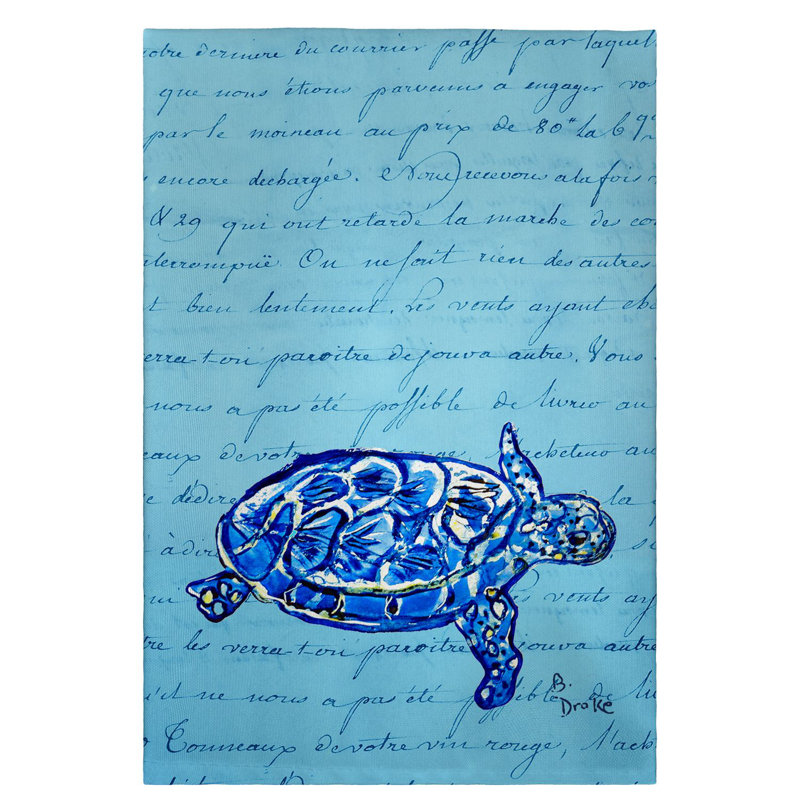 dernière du courrier passé par laquel
que nous étions parvenus a engager vo
par le moineau au prix de 80" la 6 9
encore dechargée. Nous recevons a la fois
& 29 qui ont retardé la marche des co
terrompuë. On ne foit rien des autres
t bien lentement. Les vents ayant
verra-t-on paroitre de jouva autre. Vous
nous a pas été possible de livreo au
eaux de votre
dedire la
à dir
vents ay
re les verra-t-on paroitre jouva autre
il ne nous a pas été possible de li
Tonneaux de votre vin rouge, l'ach
B.
Drake